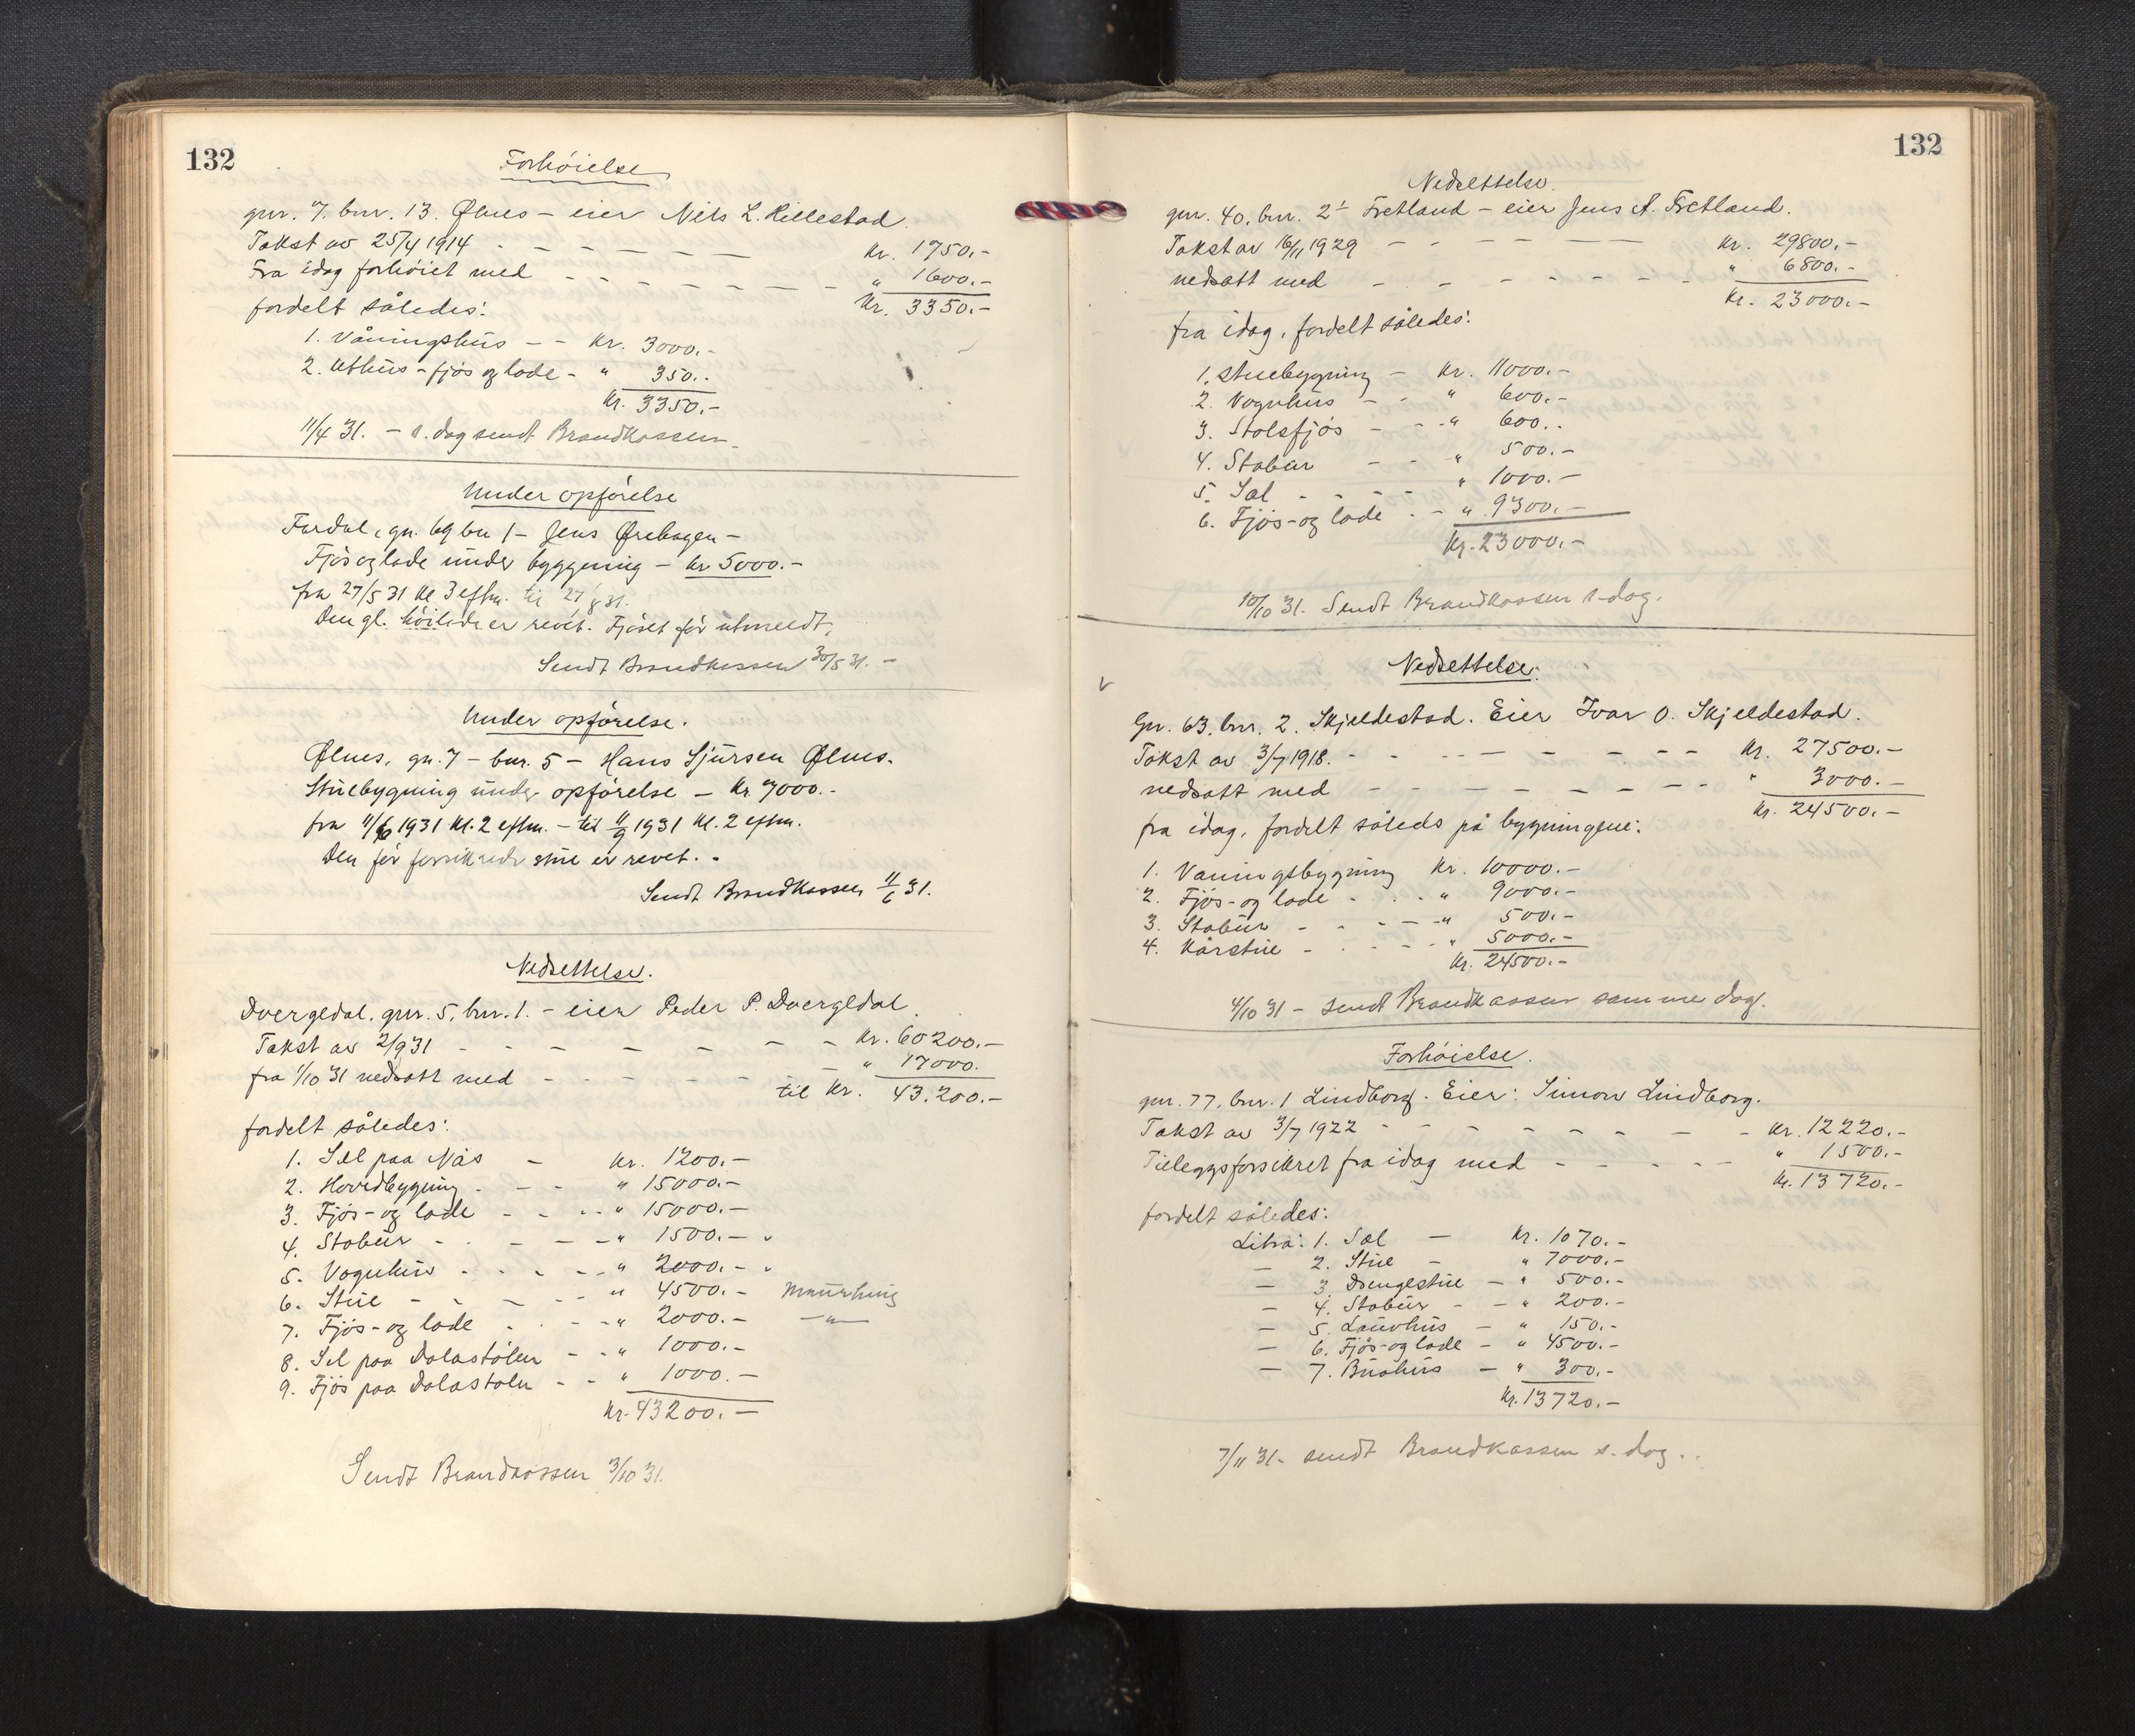 132
Forhöielse
gnr. 7. bnr. 13. Ølnes – eier Nils L. Hillestad
Takst av 25/4 1914 - - - - - - Kr. 1750.-
Fra idag forhöiet med - - - - - - - " 1600.-
fordelt således: Kr. 3350.-
1. Våningshus - - Kr. 3000.-
2. Uthus - fjös og lade - " 350.-
Kr. 3350.-
11/4 31. – s. dag sendt Brandkassen
Under opförelse
gn. 69 bn 1 – Jens Ørehagen –
Fjös og lade under byggning – kr 5000.-
fra 27/5 31 kl 3 eftm. til 27/8 31.
Den gl. er revet. Fjöset för utmeldt.
Sendt Brandkassen 30/5 31. –
Under opförelse.
Ølnes, gn. 7 – bnr. 5 – Hans Sjursen Ølnes.
Stuebygning under opförelse – Kr. 7000.-
fra 11/6 1931 kl. 2 eftm. – til 11/9 1931 kl. 2 eftm.
Den för forsikrede stue er revet. -
Sendt Brandkassen 11/6 31.
Nedsettelse.
Dvergedal. gnr. 5, bnr. 1. – eier Peder P. Dvergedal
Takst av 2/9 31 - - - - - - - Kr. 60200.-
fra 1/10 31 nedsatt med - - - - - - " 17000.
til Kr. 43.200.-
fordelt således:
1. Sel paa Nås - Kr. 1200.-
2. Hovedbygning - - - " 15000.-
3. Fjös- og lade - - - " 15000.-
4. Stabur - - - - " 1500.-
5. Vognhus - - - - " 2000.-
6. Stue - - - - " 4500.-
7. Fjös- og lade - - - " 2000.- – " –
8. Sel paa Dalastölen - - " 1000.-
9. Fjös paa Dalastöln - - " 1000.-
Kr. 43200.-
Sendt Brandkassen 3/10 31.
132
Nedsettelse.
gnr. 40, bnr. 2¹ Fretland – eier Jens A. Fretland.
Takst av 16/11 1929 - - - - - Kr. 29800.-
nedsatt med - - - - - - - " 6800.-
Kr. 23000.-
fra idag, fordelt således:
1. Stuebygning - Kr. 11000.-
2. Vognhus - - " 600.-
3. Stölsfjös - - " 600.-
4. Stabur - - " 500.-
5. Sal - - - - " 1000.-
6. Fjös- og lade - - " 9300.-
Kr. 23000.-
10/10 31. Sendt Brandkassen s. dag.
Nedsettelse.
Gn. 63. bnr. 2. Skjeldestad. Eier Ivar O. Skjeldestad.
Takst av 3/7 1918. - - - - - - - - Kr. 27500.-
nedsatt med - - - - - - - - " 3000.-
Kr. 24500.-
fra idag, fordelt således på bygningene:
1. Vaningsbygning Kr. 10000.-
2. Fjös- og lade - - - " 9000.-
3. Stabur - - - - " 500.-
4. Kårstue - - - - " 5000.-
Kr. 24500.-
4/10 31 – sendt Brandkassen samme dag.
Forhöielse.
gnr. 77, bnr. 1 Lindborg. Eier: Simon Lindborg.
Takst av 3/7 1922 - - - - - - - - Kr. 12220.-
Tilleggsforsikret fra idag med - - - - - " 1500.-
Kr. 13720.-
fordelt således:
Litra: 1. Sal - Kr. 1070.-
– 2. Stue - " 7000.-
– 3. Drengestue - " 500.-
– 4. Stabur - - " 200.-
– 5. Lauvhus - " 150.-
– 6. Fjös- og lade - " 4500.-
– 7. Buahus - " 300.-
Kr. 13720.-
7/11 31. sendt Brandkassen s. dag.